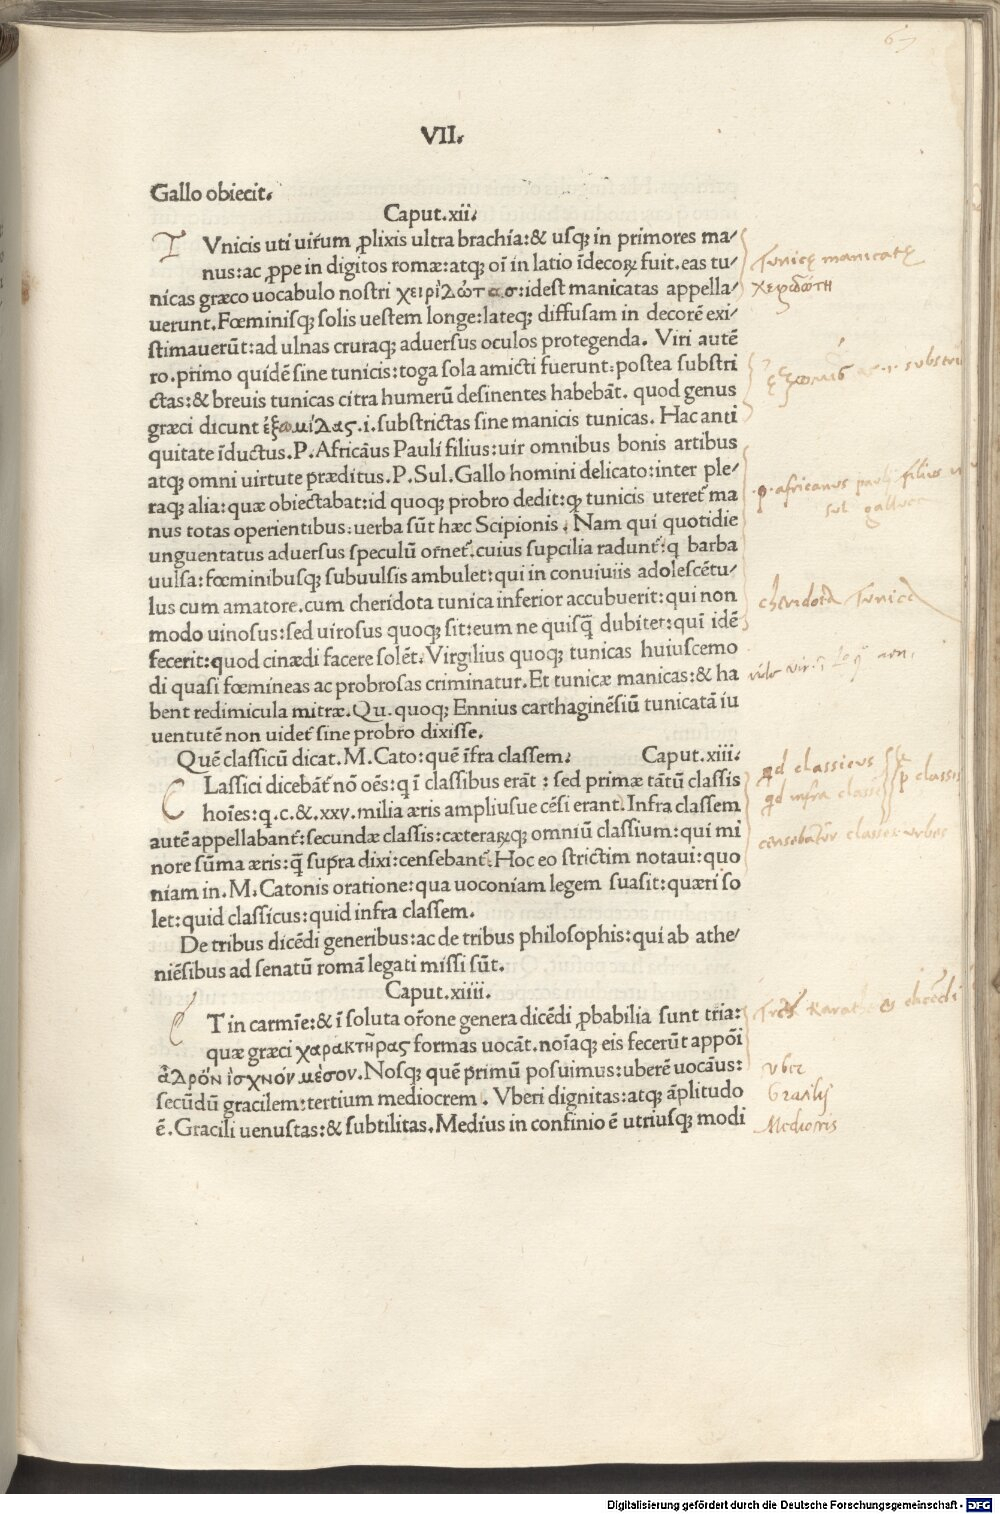 67
VII.
Gallo obiecit.
Caput.xii.
T Vnicis uti uiꝝum ꝓlixis ultra brachia:& usqꝫ in primores ma/
nus:ac ꝓpe in digitos romæ:atqꝫ oī in latio īdecoꝝ fuit.eas tu/
nicas græco uocabulo nostri χειριλώτασ:idest manicatas appella/
uerunt.Fœminisqꝫ solis uestem longe:lateqꝫ diffusam in decorē exi/
stimauerūt:ad ulnas cruraqꝫ aduersus oculos protegenda. Viri autē
ro.primo quidē sine tunicis:toga sola amicti fuerunt:postea substri
ctas:& breuis tunicas citra humerū desinentes habebāt. quod genus
græci dicunt ἐξωμίλας.i.substrictas sine manicis tunicas. Hac anti
quitate īductus.P.Africāus Pauli filius:uir omnibus bonis artibus
atqꝫ omni uirtute præditus.P.Sul.Gallo homini delicato:inter ple/
raqꝫ alia:quæ obiectabat:id quoqꝫ probro dedit:qꝫ tunicis uteret̄ ma
nus totas operientibus:uerba sūt hæc Scipionis. Nam qui quotidie
unguentatus aduersus speculū ornet̄.cuius supcilia radunt̄:q barba
uulsa:fœminibusqꝫ subuulsis ambulet:qui in conuiuiis adolescētu/
lus cum amatore.cum cheridota tunica inferior accubuerit:qui non
modo uinosus:sed uirosus quoqꝫ sit:eum ne quisq̄ dubitet:qui idē
fecerit:quod cinædi facere solēt.Virgilius quoqꝫ tunicas huiuscemo
di quasi fœmineas ac probrosas criminatur.Et tunicæ manicas:& ha
bent redimicula mitræ.Qu.quoqꝫ Ennius carthaginēsiū tunicatā iu
uentutē non uidet̄ sine probro dixisse.
Quē classicū dicat.M.Cato:quē īfra classem. Caput.xiii.
C Lassici dicebāt̄ nō oēs:q ī classibus erāt : sed primæ tātū classis
hoīes:q.c.&.xxv.milia æris ampliusue cēsi erant.Infra classem
autē appellabant̄:secundæ classis:cæteraꝝqꝫ omniū classium:qui mi
nore sūma æris:q̄ supra dixi:censebant̄.Hoc eo strictim notaui:quo
niam in.M.Catonis oratione:qua uoconiam legem suasit:quæri so
let:quid classicus:quid infra classem.
De tribus dicēdi generibus:ac de tribus philosophis:qui ab athe/
niēsibus ad senatū romā legati missi sūt.
Caput.xiiii.
E T in carmīe:& ī soluta oīone genera dicēdi ꝓbabilia sunt tria:
quæ græci χαρακτῆρας formas uocāt.noīaqꝫ eis fecerūt appōi
ἁλρὸν ἰσχνόν μέσον.Nosqꝫ quē primū posuimus:uberē uocāus:
secūdū gracilem:tertium mediocrem . Vberi dignitas:atqꝫ āplitudo
ē.Gracili uenustas:& subtilitas.Medius in confinio ē utriusqꝫ modi
Tunicę manicatę
χειριδώτη
substri
.p.africanus pauli filius
sul gallus
cheridota Tunica
vide vir.
qd classicus
qd infra classē
classes
censebant̄ classes urbes
dicēdi
Vber
Gracilis
Mediocris
Digitalisierung gefördert durch die Deutsche Forschungsgemeinschaft - DFG